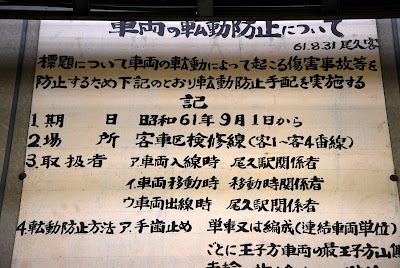 車両の転動防止について
61.8.31 尾久客
標題について車両の転動によって起こる傷害事故等を
防止するため下記のとおり転動防止手配を実施する
記
1.期 日 昭和61年9月1日から
2.場 所 客車区検修線(客1~客4番線)
3.取扱者 ア.車両入線時 尾久駅関係者
イ.車両移動時 移動時関係者
ウ.車両出線時 尾久駅関係者
4.転動防止方法 ア.手歯止め 単車又は編成(連結車両単位)
ごとに王子方車両の最王子方山側